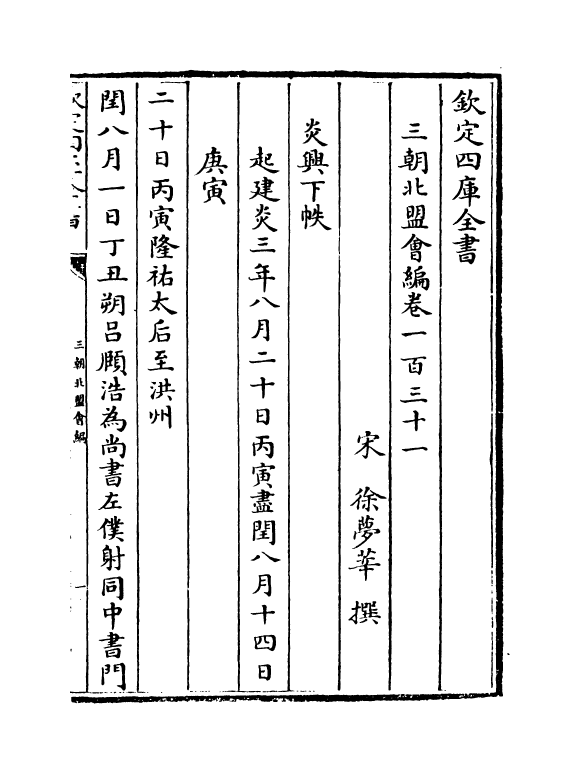 欽定四庫全書
三朝北盟會編卷一百三十一
宋 徐夢莘 撰
炎興下帙
起建炎三年八月二十日丙寅盡閏八月十四日
庚寅
二十日丙寅隆祐太后至洪州
閏八月一日丁丑朔呂頤浩為尚書左僕射同中書門
三朝北盟會編
一